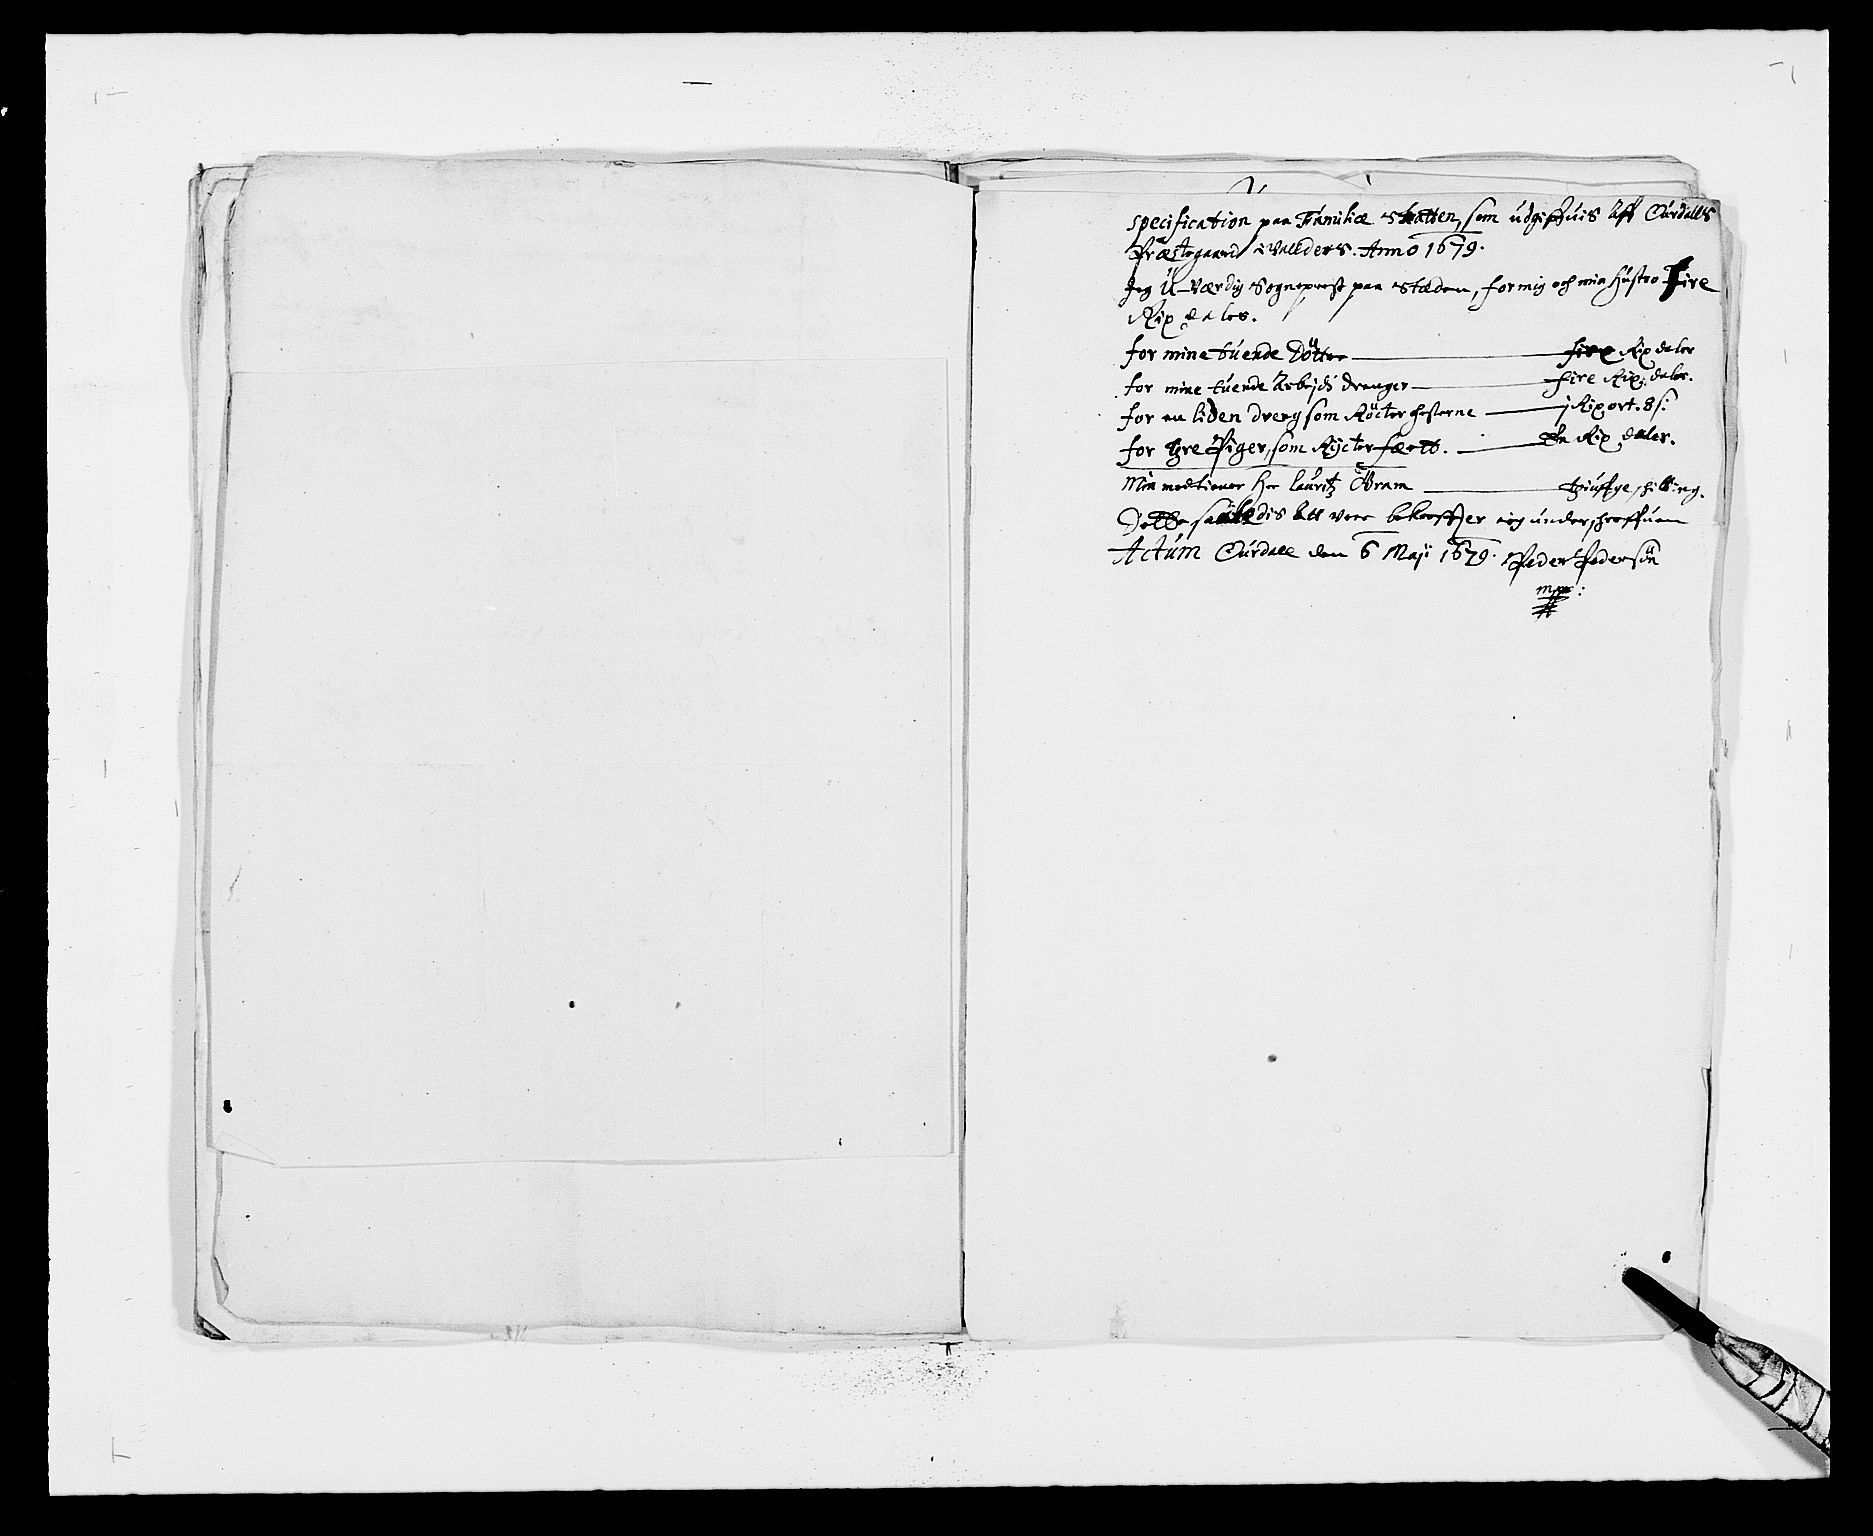 Specification paa Familiæ Skatten, som udgiffuis aff Ourdalls
Præstegaard i Vallders. Anno 1679.
Jeg U-værdig Sogneprest paa Stæden, for mig och min Hustro Fire
Rix daler.
for mine tuende Dötter fire Rix daler
for mine tuende Arbejds drenger fire Rix daler.
for en liden dreng som Röcter hesterne j Rix ort. 8 s:
for tre Piger, som Rycter fæett. Rix daler.
Min medtiener Her Lauritz Bram tiuffge schilling.
Dette saaledis att vere bekreffter ieg underschreffuen
Actum Ourdall den 6 Maji 1679. Peder Pedersön
mpr: